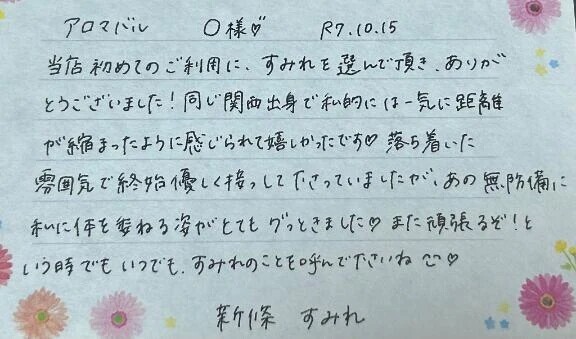 アロマバル 〇様♡ R7.10.15
当店初めてのご利用に、すみれを選んで頂き、ありが
とうございました！同じ関西出身で私的には一気に距離
が縮まったように感じられて嬉しかったです♡ 落ち着いた
雰囲気で終始優しく接して下さっていましたが、あの無防備に
私に体を委ねる姿がとてもグッときました♡ また頑張るぞ！と
いう時でもいつでも、すみれのことを呼んで下さいね ♡
新條 すみれ